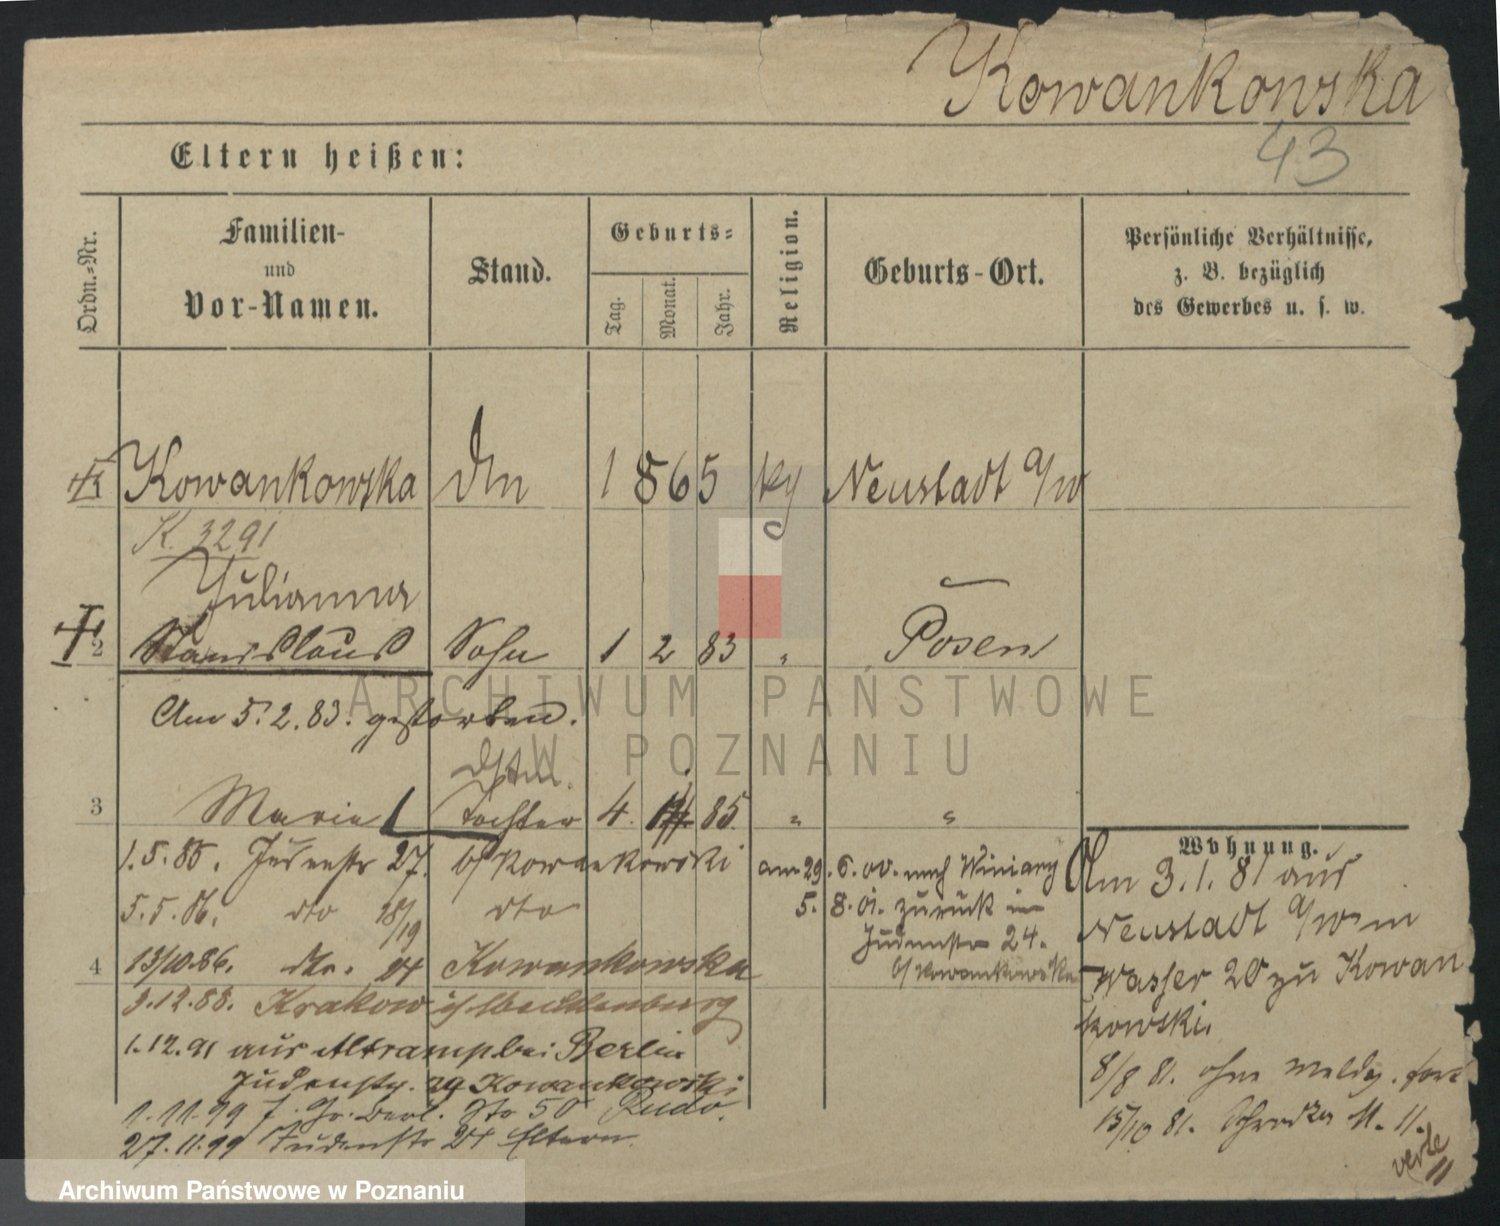 Kowankowska
43
Eltern heißen:
Ordn.-Nr.
Familien-
und
Vor-Namen.
Stand.
Geburts-
Tag.
Monat.
Jahr.
Religion.
Geburts-Ort.
Persönliche Verhältnisse,
z. B. bezüglich
des Gewerbes u. s. w.
Kowankowska 1865 Neustadt a/w
K. 3291
Julianna
2 Stanislaus Sohn 1 2 83 " Posen
Am 5.2.83. gestorben.
3 Marie Tochter 4. 85. " "
1.5.86. Judenstr 27. b/ Kowankowski
5.5.86. dto 18/19 dto
4 13/10.86. dto. 24 Kowankowska
3.12.88. Krakow Mecklenburg
1.12.91 aus Altramp bei Berlin
Judenstr. 29 Kowankowski
1.11.99 Gr. Berl. Str 50
27.11.99 Judenstr 24 Eltern
am 29.6.00. nach Winiary
5.8.01. zurück in
Judenstr 24.
b/ Kowankowska
Wohnung.
Am 3.1.81 aus
Neustadt a/w in
Wasser 20 zu Kowan
kowski.
8/8 81. ohne Meldg. fort
15/10 81. Schrodka 11. 11.
verte
ARCHIWUM PAŃSTWOWE
W POZNANIU
Archiwum Państwowe w Poznaniu